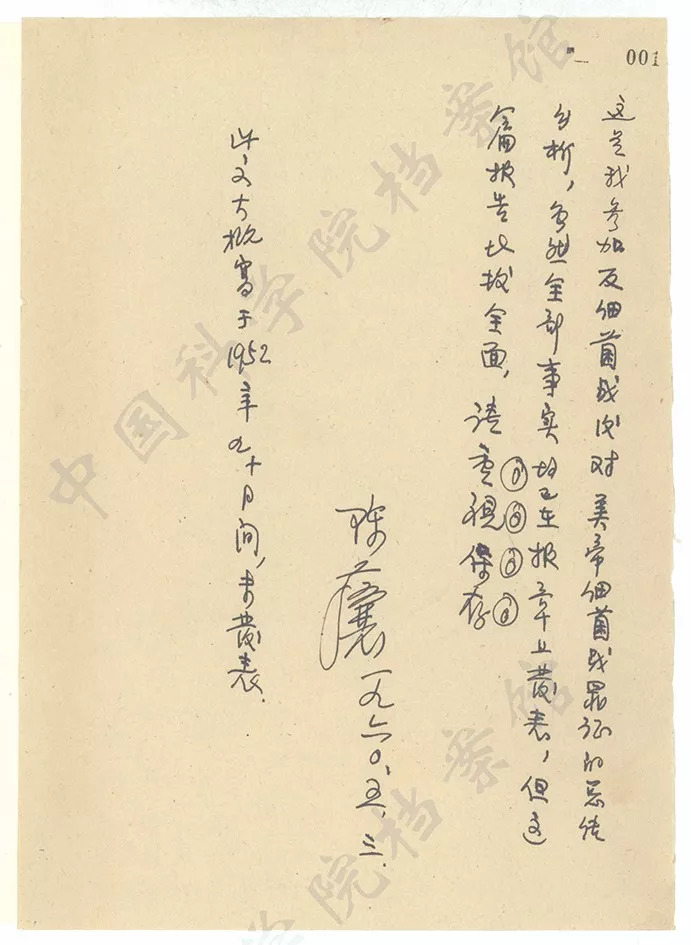 001
这是我参加反细菌战后对美帝细菌战罪证的总结
分析，虽然全部事实均已在报章上发表，但这
篇报告比较全面，请重视保存
陈文贵 一九六〇.五.三.
此文大概写于1952年九十月间，未发表.
中国科学院档案馆
院档案馆